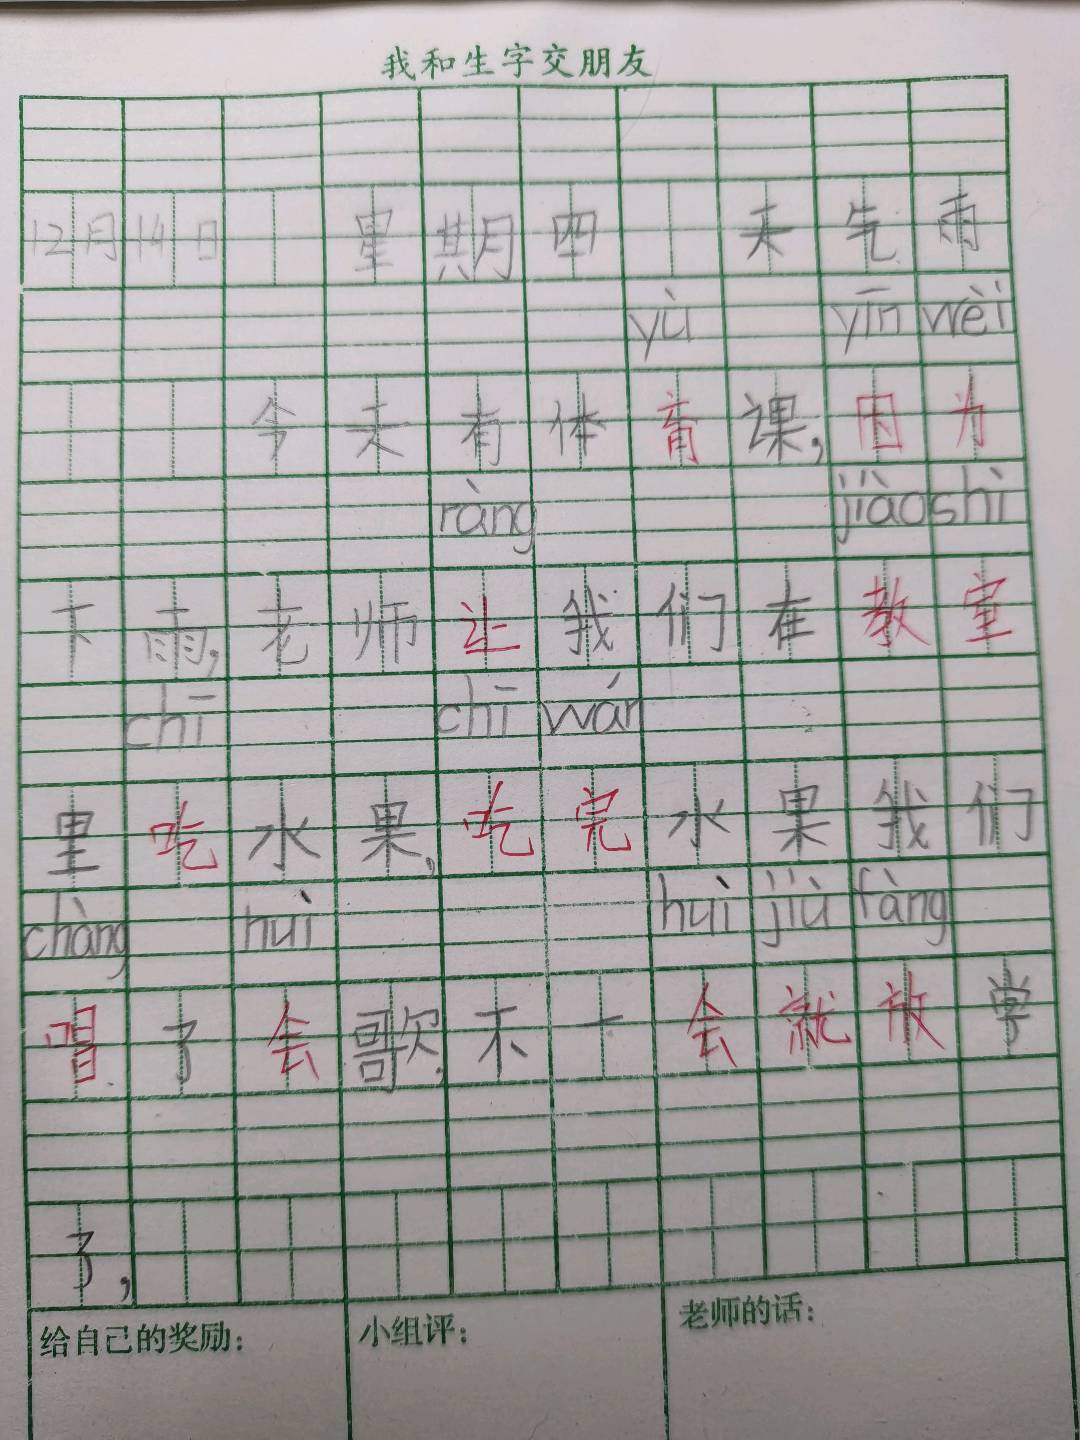 我和生字交朋友
12月14日 星期四 天气雨
yù yīn wèi
今天有体育课,因为
ràng jiào shì
下雨,老师让我们在教室
chī chī wán
里吃水果,吃完水果我们
chàng huì huì jiù fàng
唱了会歌.不一会就放学
了,
给自己的奖励:
小组评:
老师的话: